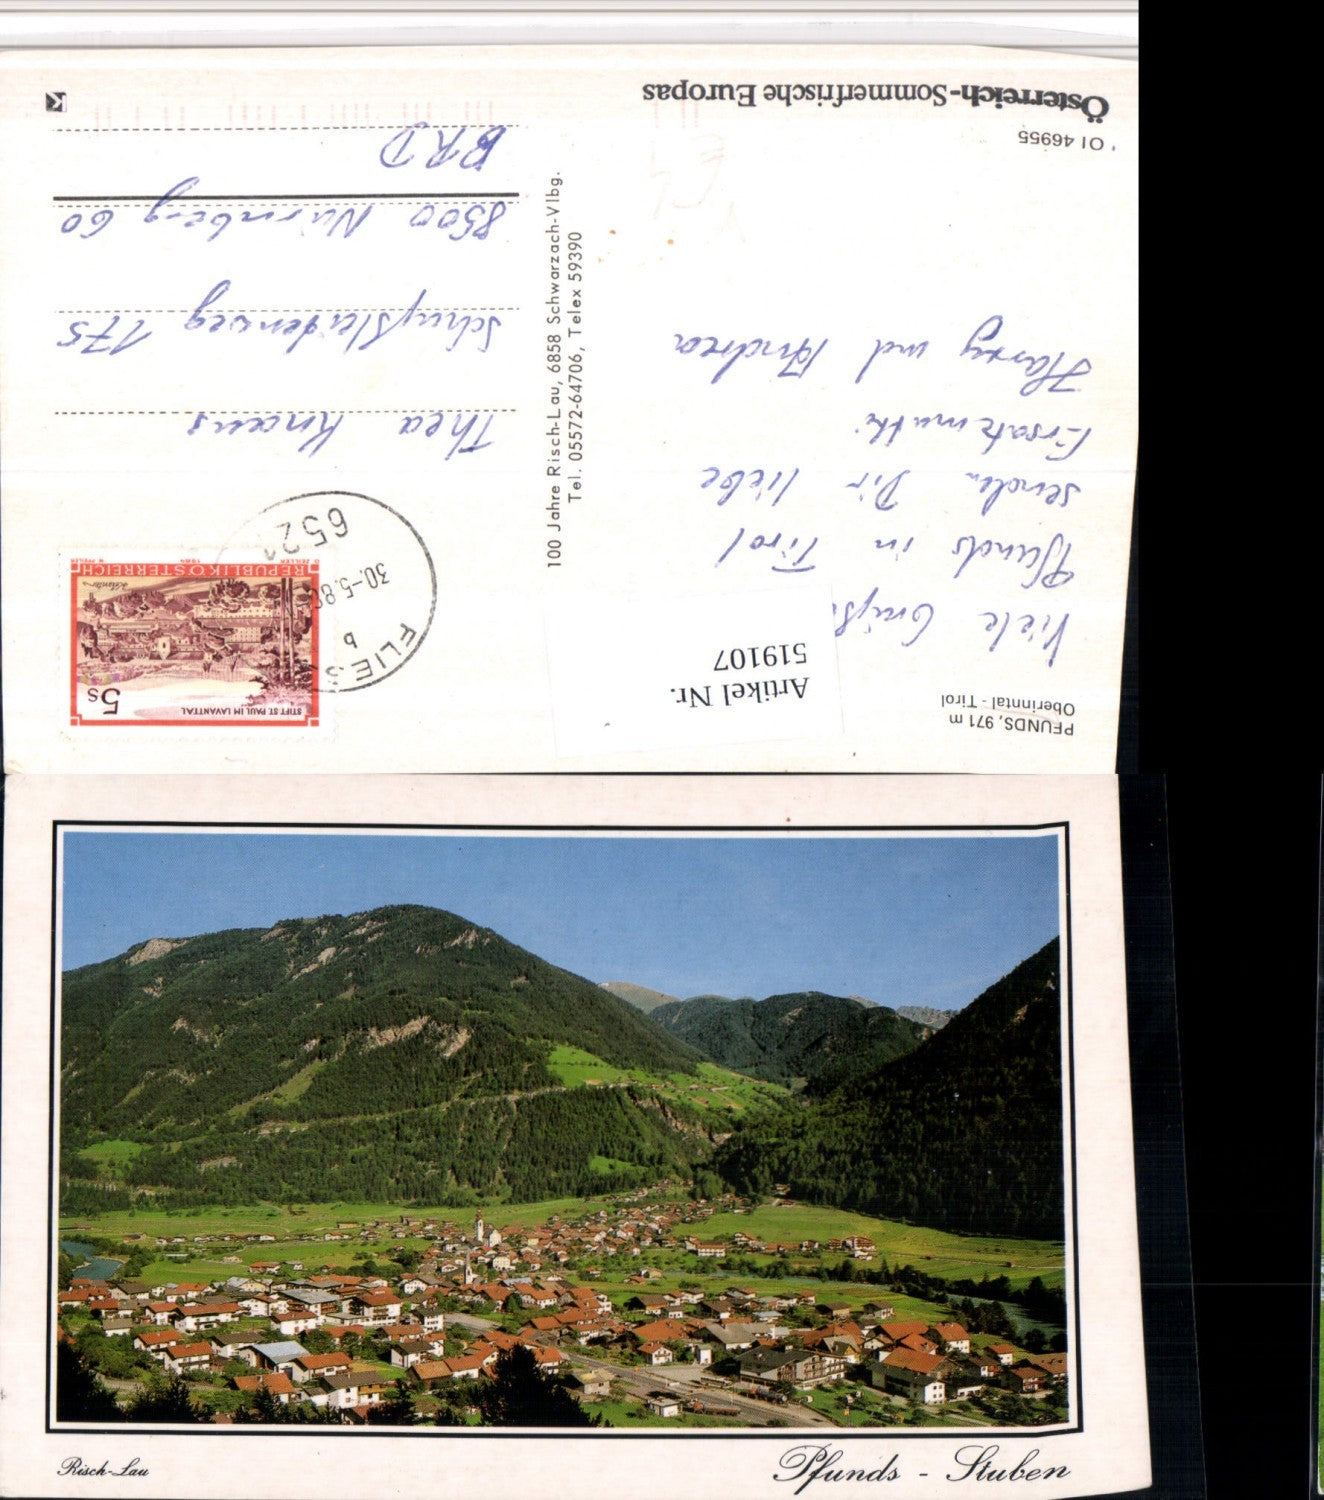 PFUNDS, 971 m
Oberinntal - Tirol
Artikel Nr.
519107
Viele Grüße
Pfunds in Tirol
senden Dir liebe
Ersatzmutti
Harry und Andrea
' OI 46955
Österreich-Sommerfrische Europas
100 Jahre Risch-Lau, 6858 Schwarzach-Vlbg.
Tel. 05572-64706, Telex 59390
5S
STIFT ST. PAUL IM LAVANTTAL
REPUBLIK ÖSTERREICH
FLIES
b
30.-5.8
652
Thea Knaus
175
8500 Nürnberg 60
BRD
Risch-Lau
Pfunds - Stuben